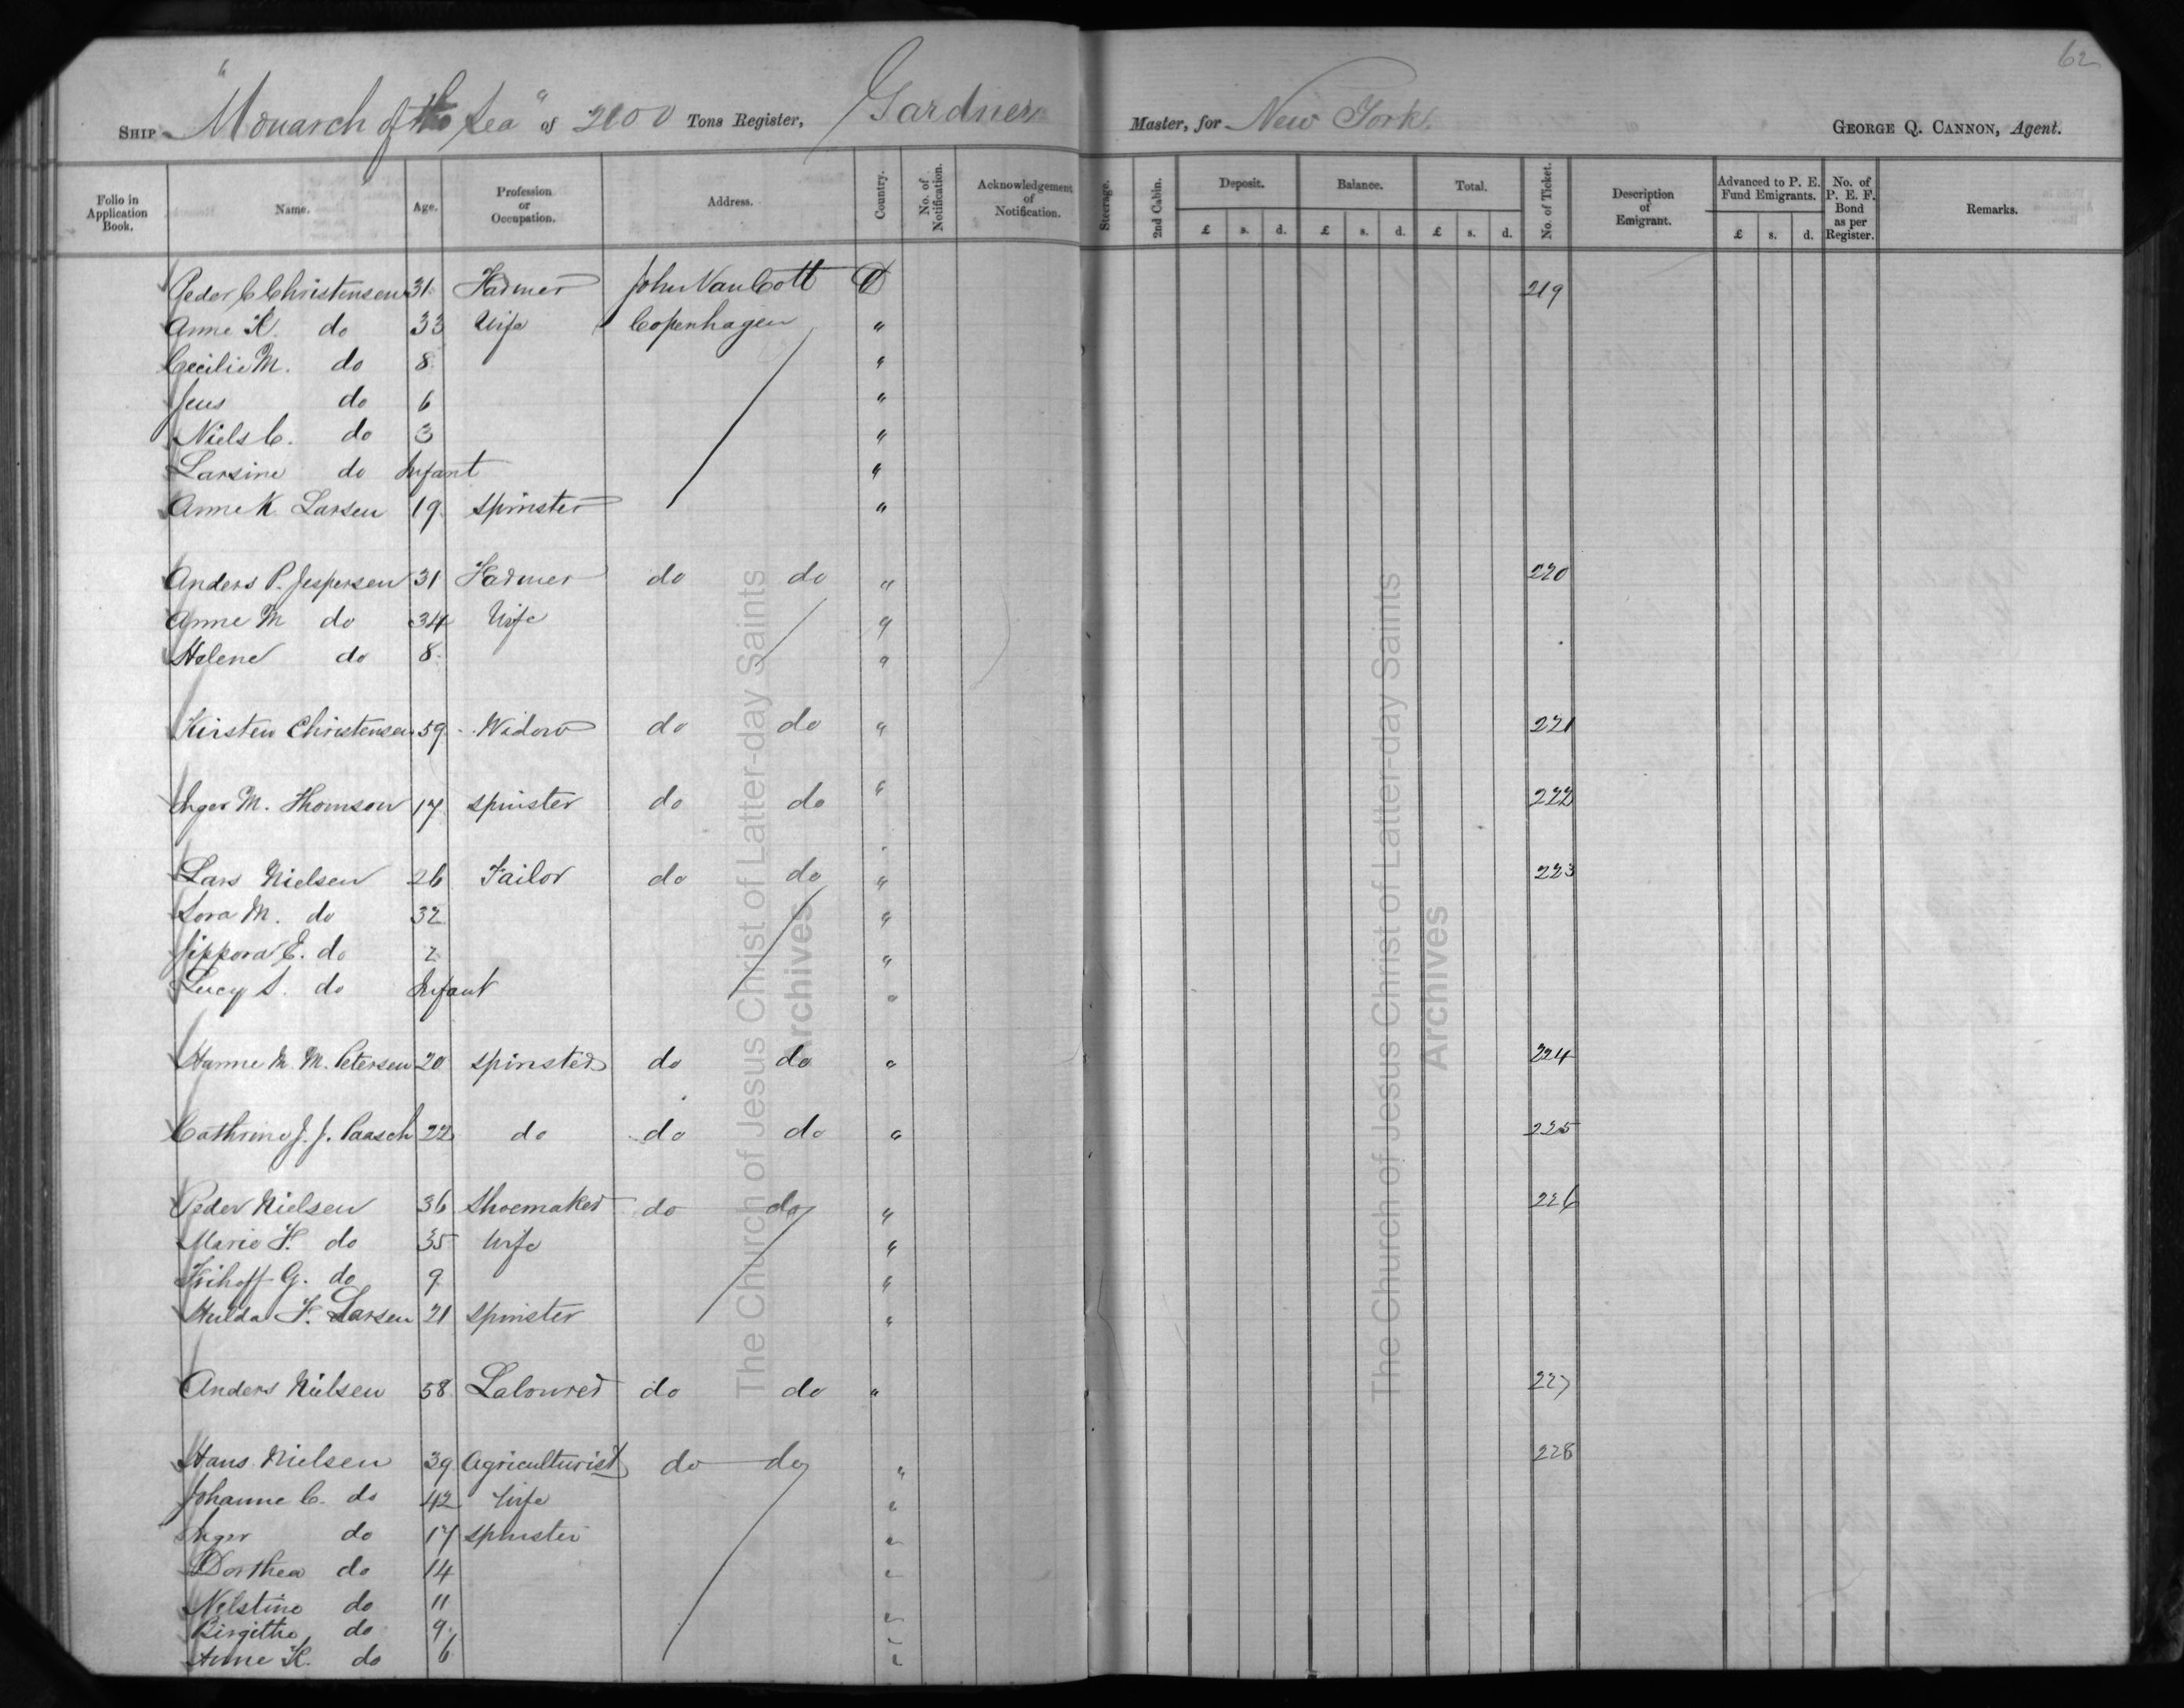 62
Ship "Monarch of the Sea" of 2100 Tons Register, Gardner Master, for New York. George Q. Cannon, Agent.
Folio in Application Book. Name. Age. Profession or Occupation. Address. Country. No. of Notification. Acknowledgement of Notification. Steerage. 2nd Cabin. Deposit. £ s. d. Balance. £ s. d. Total. £ s. d. No. of Ticket. Description of Emigrant. Advanced to P. E. Fund Emigrants. £ s. d. No. of P. E. F. Bond as per Register. Remarks.
Peder C Christensen 31 Farmer John Van Cott D 219
Anne K. do 33 Wife Copenhagen "
Cecilie M. do 8 "
Jens do 6 "
Niels C. do 3 "
Larsine do Infant "
Anne K Larsen 19 Spinster "
Anders P. Jespersen 31 Farmer do do " 220
Anne M do 34 Wife "
Helene do 8 "
Kirsten Christensen 59 Widow do do " 221
Inger M. Thomson 17 Spinster do do " 222
Lars Nielsen 26 Tailor do do " 223
Sora M. do 32 "
Sippora E. do 2 "
Lucy S. do Infant "
Hanne M. M. Petersen 20 Spinster do do " 224
Cathrine J. J. Paasch 22 do do do " 225
Peder Nielsen 36 Shoemaker do do " 226
Marie F. do 35 Wife "
G. do 9 "
Hulda F. Larsen 21 Spinster "
Anders Nielsen 58 Labourer do do " 227
Hans Nielsen 39 Agriculturist do do " 228
Johanne C. do 42 Wife "
Inger do 17 Spinster "
Dorthea do 14 "
Nelstine do 11 "
Birgitthe do 9 "
Anne K. do 6 "
The Church of Jesus Christ of Latter-day Saints
Archives
The Church of Jesus Christ of Latter-day Saints
Archives